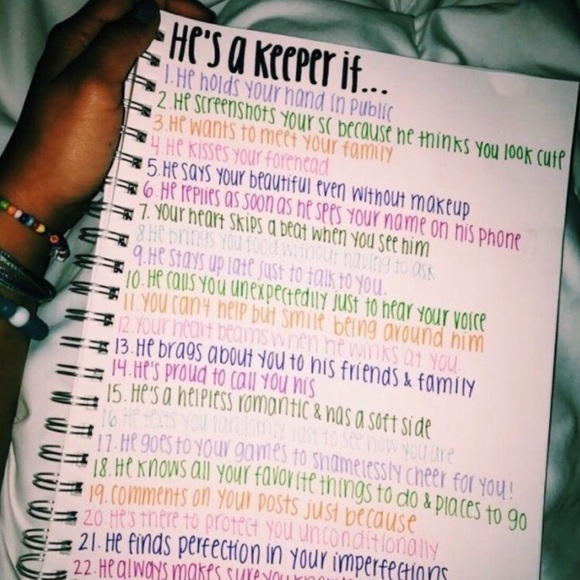 He's a keeper if...
1. He holds your hand in public
2. He screenshots your sc because he thinks you look cute
3. He wants to meet your family
4. He kisses your forehead
5. He says your beautiful even without makeup
6. He replies as soon as he sees your name on his phone
7. Your heart skips a beat when you see him
8. He brings you food without having to ask
9. He stays up late just to talk to you.
10. He calls you unexpectedily just to hear your voice
11. You can't help but smile being around him
12. Your heart beams when he winks at you.
13. He brags about you to his friends & family
14. He's proud to call you his
15. He's a helpless romantic & has a soft side
16. He texts you randomly just to see how you are
17. He goes to your games to shamelessly cheer for you!
18. He knows all your favorite things to do & places to go
19. Comments on your posts just because
20. He's there to protect you unconditionally
21. He finds perfection in your imperfections
22. He always makes sure you